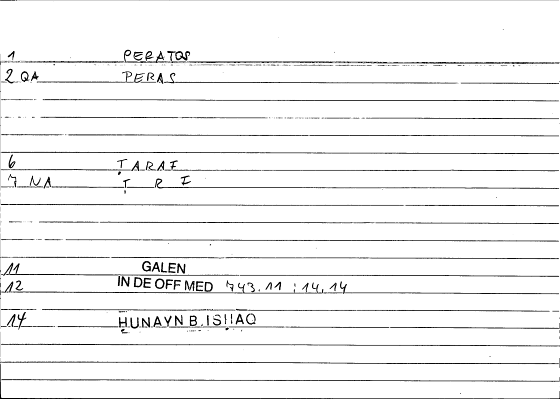 1 PERATOS
2 QA PERAS
6 ṬARAF
7 NA Ṭ R F
11 GALEN
12 IN DE OFF MED 743.11 ; 14.14
14 ḤUNAYN B. ISḤAQ